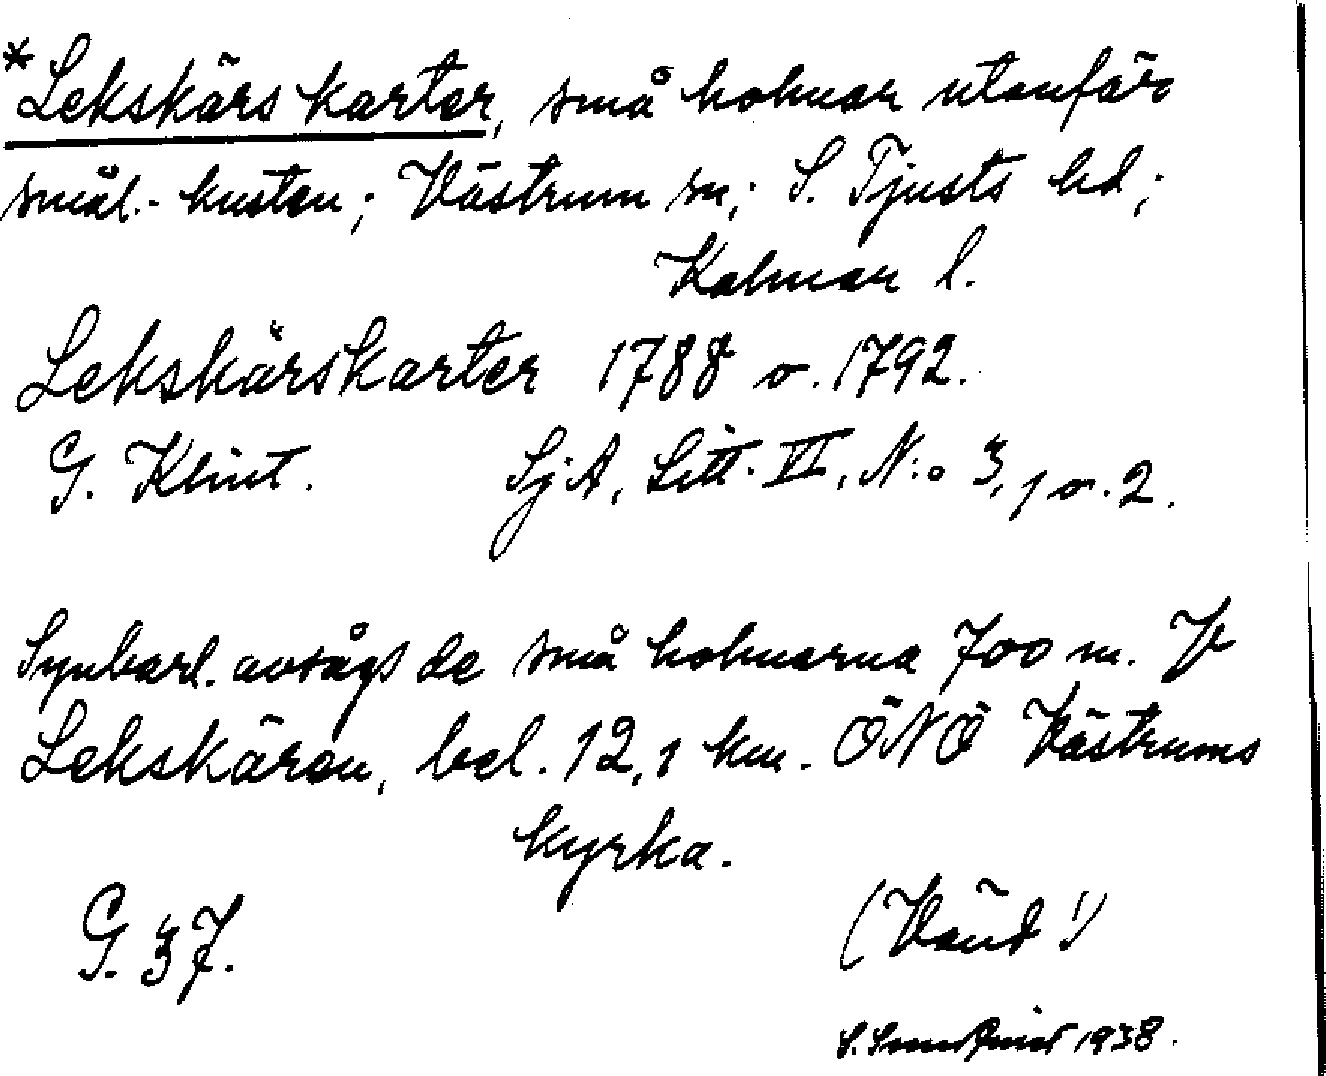 *Lekskärskarter, små holmar utanför
smål.-kusten; Västrum sn; S. Tjusts hd;
Kalmar l.
Lekskärskarter 1788 o. 1792.
G. Klint. SjA, Litt. VI, N:o 3, 1 o. 2.
Synbarl. avsågs de små holmarna 700 m. V
Lekskären, bel. 12,1 km. ÖNÖ Västrums
kyrka.
G. 37. (Vänd!)
1938.